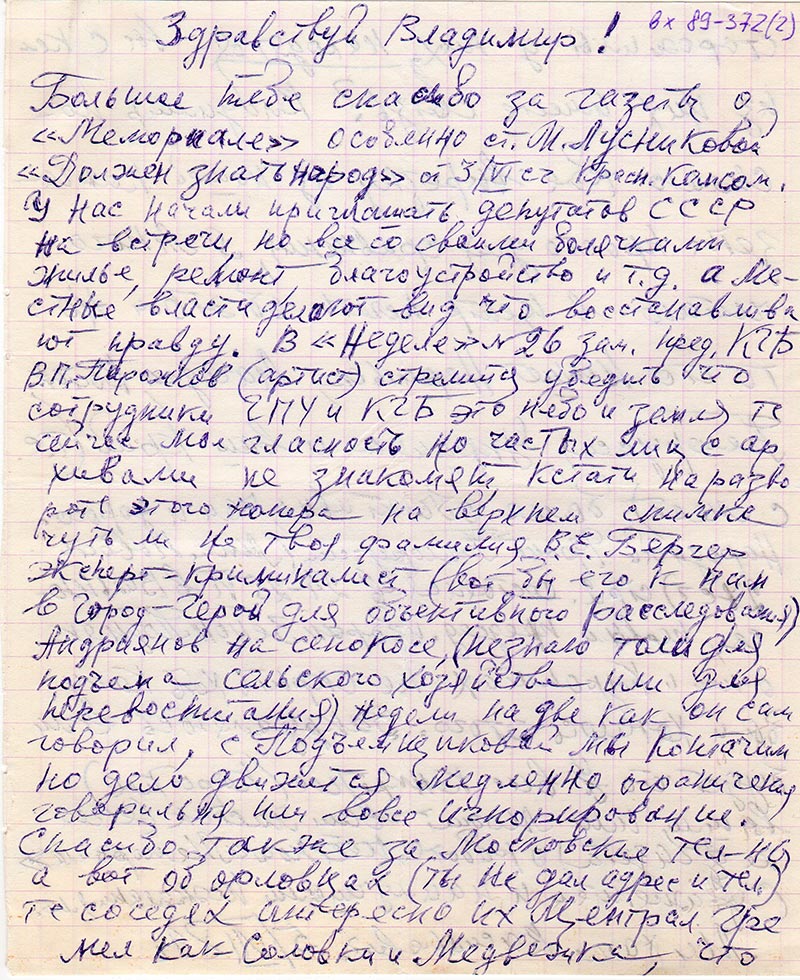 вх 89-372(2)
Здравствуй Владимир!
Большое тебе спасибо за газеты о
«Мемориале» особенно ст. М. Лусниковой
«Должен знать народ» от 3/VI сг Красн. Комсом.
У нас начали приглашать депутатов СССР
на встречи но все со своими болячками
жилье, ремонт, благоустройство и т.д. а ме-
стные власти делают вид что восстанавлива
ют правду. В «Неделе» №26 зам. пред. КГБ
В.П. Пирожков (артист) стремится убедить что
сотрудники ГПУ и КГБ это небо и земля, те
сейчас мол гласность но частых лиц с ар
хивами не знакомят кстати на разво
роте этого номера на верхнем снимке
чуть ли не твоя фамилия В.Е. Бергер
эксперт-криминалист (вот бы его к нам
в город-Герой для объективного расследования)
Андраянов на сенокосе, (незнаю толи для
подъема сельского хозяйства или для
перевоспитания) недели на две как он сам
говорил, с Подъемщиковой мы контачим
но дело движется медленно, ограничения
говорильня или вовсе игнорирование.
Спасибо также за Московские тел-ны
а вот об орловцах (ты не дал адрес и тел.)
те соседей интересно их Централ гре
мел как Соловки и Медвежка, что